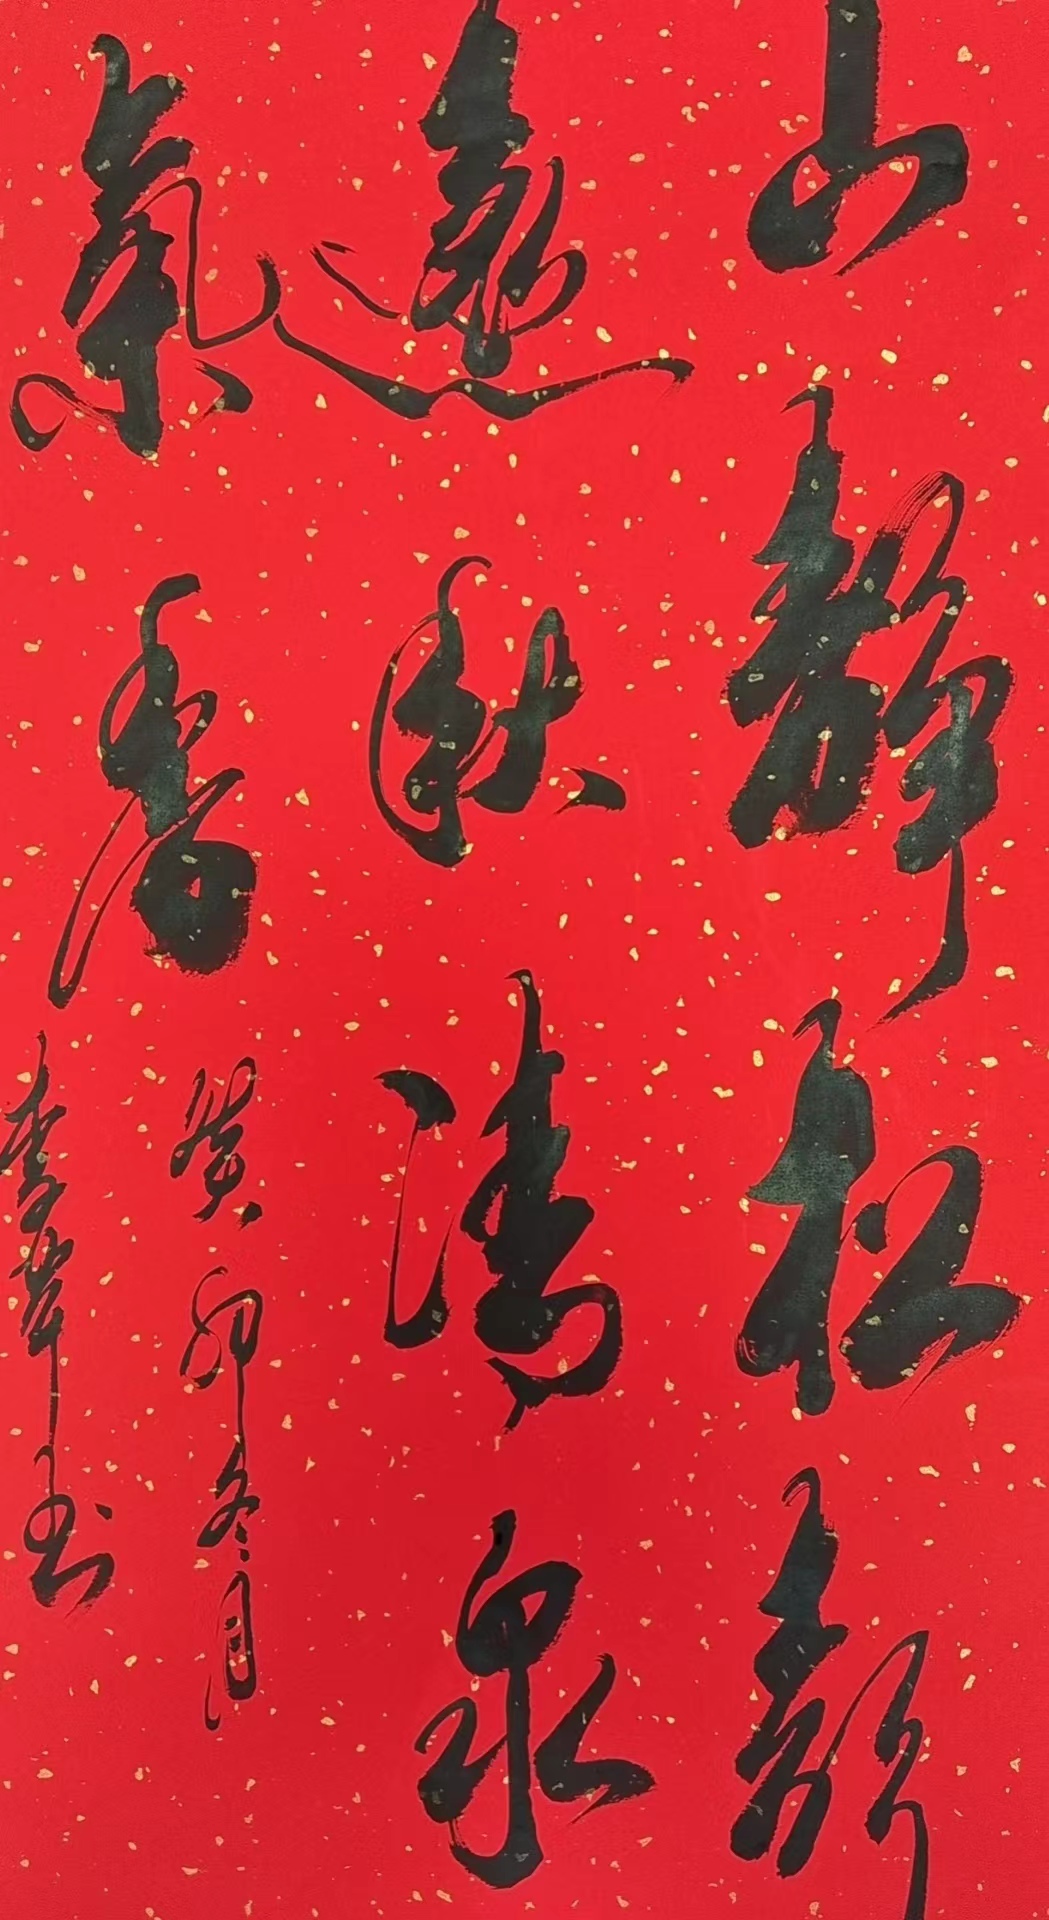 山静松声
远秋清泉
气香
癸卯冬月
李革书